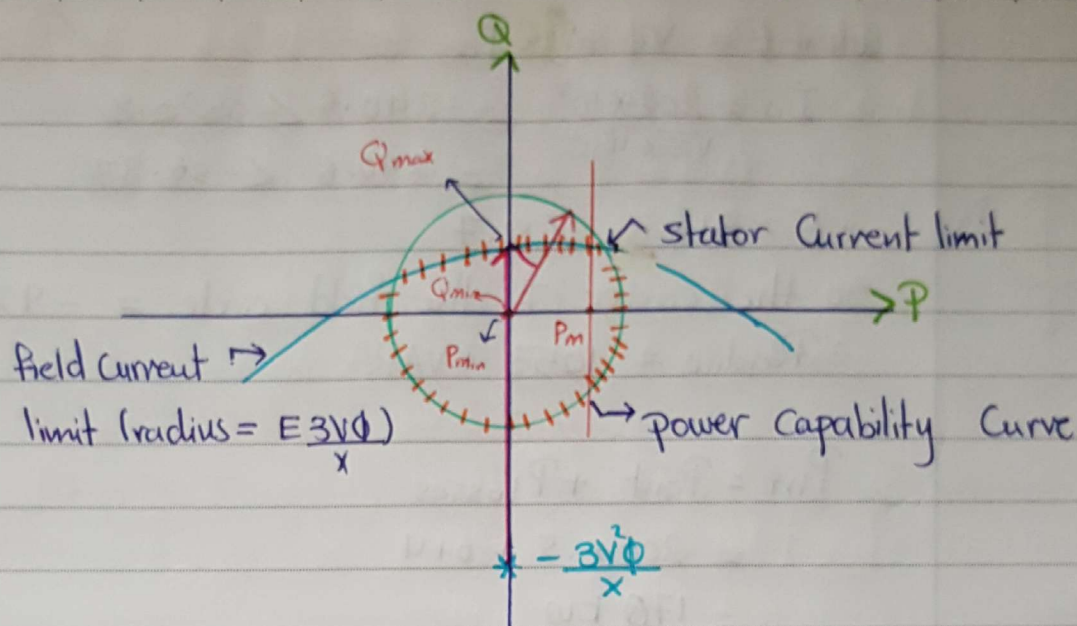 Q
Qmax
stator Current limit
Qmin
P
Pmin
Pm
field Current
limit (radius = E3VΦ/x)
power Capability Curve
-3V²Φ/x